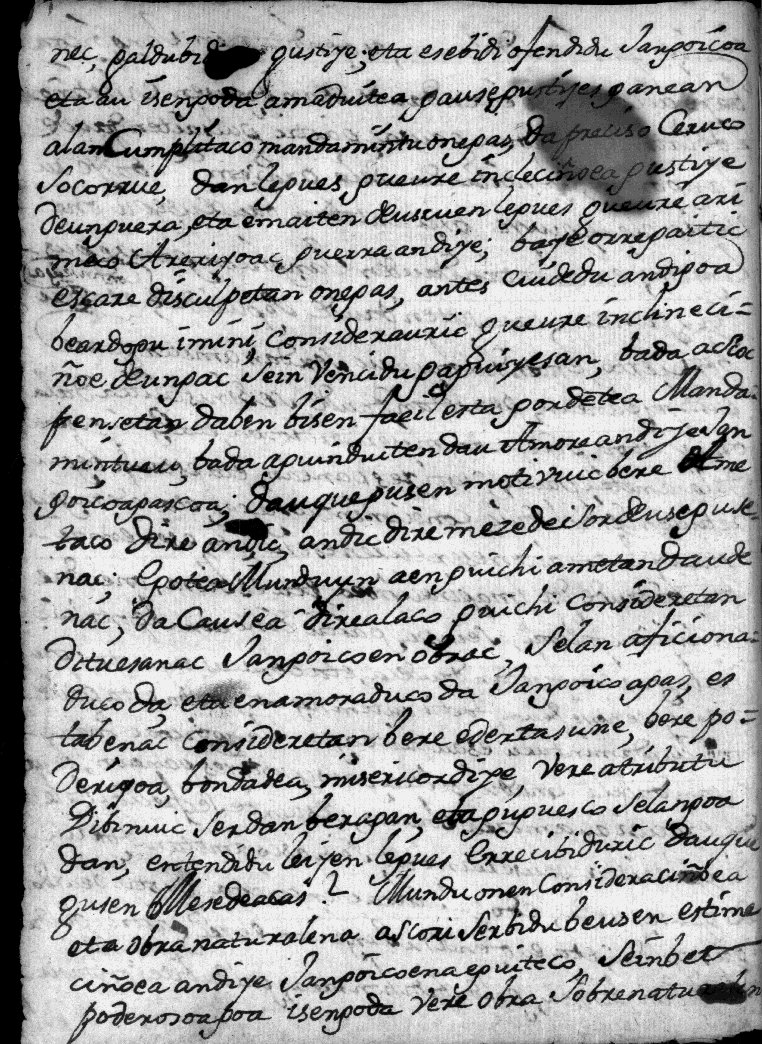 nec, galdubidu gustiye, eta esebidi ofendidu Jangoicoa
eta au isengoda, amaduitea gausegustijes ganean
alan Cumplitaco mandamintu onegas, da preciso Ceruco
Socorrue, dan legues, gueure incleciñoea gustiye
deunguera, eta emaiten deuscuen legues gueure ari
meco Arerijoac, guerra andiye; baye orregaitic
escare disculpetan onegas, antes cuidedu andigoa
beardogu imini Considerauric gueure inclineci=
ñoe deungac, sein Vencidu gaguiyesan, bada acRac
pensetan daben bisen facil esta gordetea Manda.
mintueu, bada aguinduiten dau Amore andije Jan
goicoagascoa; daugugusen motivuic bere Ame
taco dire andic, andic dire mezedeisordeusegus=
nac; Egotea Munduyn aen guichi ametan daude
nac, da Causea direalaco guichi Consideretan
dituesanac Jangoicoen obrac, Selan aficiona=
duco da, eta enamoraduco da Jangoicoagas, es
tabenac Consideretan bere edertasune, bere po=
derigoa, bondadea, misericordije, Vere atributu
Dibinuic Serdan beragan, eta guguesco Selangoa
dan, entendidu leijen legues Errecibiduric dauqu
gusen Mesedeacas? Mundu onen Consideraciñoea
eta obra naturalena ascori serbidu beusen estima
ciñoea andiye Jangoicoena eguiteco, Seinbet
poderosoagoa isengoda Vere obra Sobrenaturalen